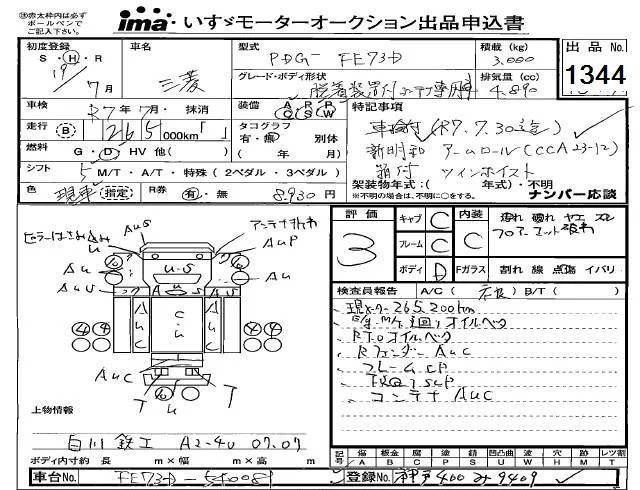 ㊟赤太枠内は必ず
ボールペンで
ご記入下さい。
ima いすゞモーターオークション出品申込書
初度登録
S・H・R
19年
7月
車名
三菱
型式
PDG-FE73D
積載(kg)
3,000
出品No.
1344
グレード・ボディ形状
脱着装置付コンテナ専用車
排気量(cc)
4,890
車検
R7年7月・抹消
装備
A P P
C S W
特記事項
車検付(R7.7.30迄)
走行
B
265,000km「 」
タコグラフ
有・無 別体
( 年 月)
新明和 アームロール(CCA23-12)
燃料
G・D・HV 他( )
箱付 ツインホイスト
シフト
5 M/T・A/T・特殊(2ペダル・3ペダル)
架装物年式:( 年式)・不明
※不明の場合は、不明に○をする。
ナンバー応談
色
現車(指定)
R券
有・無
8,930円
評価
3
キャブ C
フレーム C
ボディ D
内装
C
汚れ 破れ ヤエ スレ
フロアマット
Fガラス
割れ 線 点傷 イバリ
AuS
アンテナ
AuP
Au
Au
AuS
AuC
U・S
A U A S
T
T
検査員報告
A/C( )B/T( )
現メーター 265,200km
E/g M/t 廻りオイルベタ
PTOオイルベタ
RフェンダーAuC
フレームCP
下廻りSCP
コンテナAuC
上物情報
自川鉄工 A2-40 07.07
ボディ内寸約 長 m×幅 m×高 m
記号
傷 板金 腐 塗 錆 凹凸曲 波 穴 跡 レツ割
A B C P S U W H M T
車台No.
FE73D-
登録No.
神戸400 9409